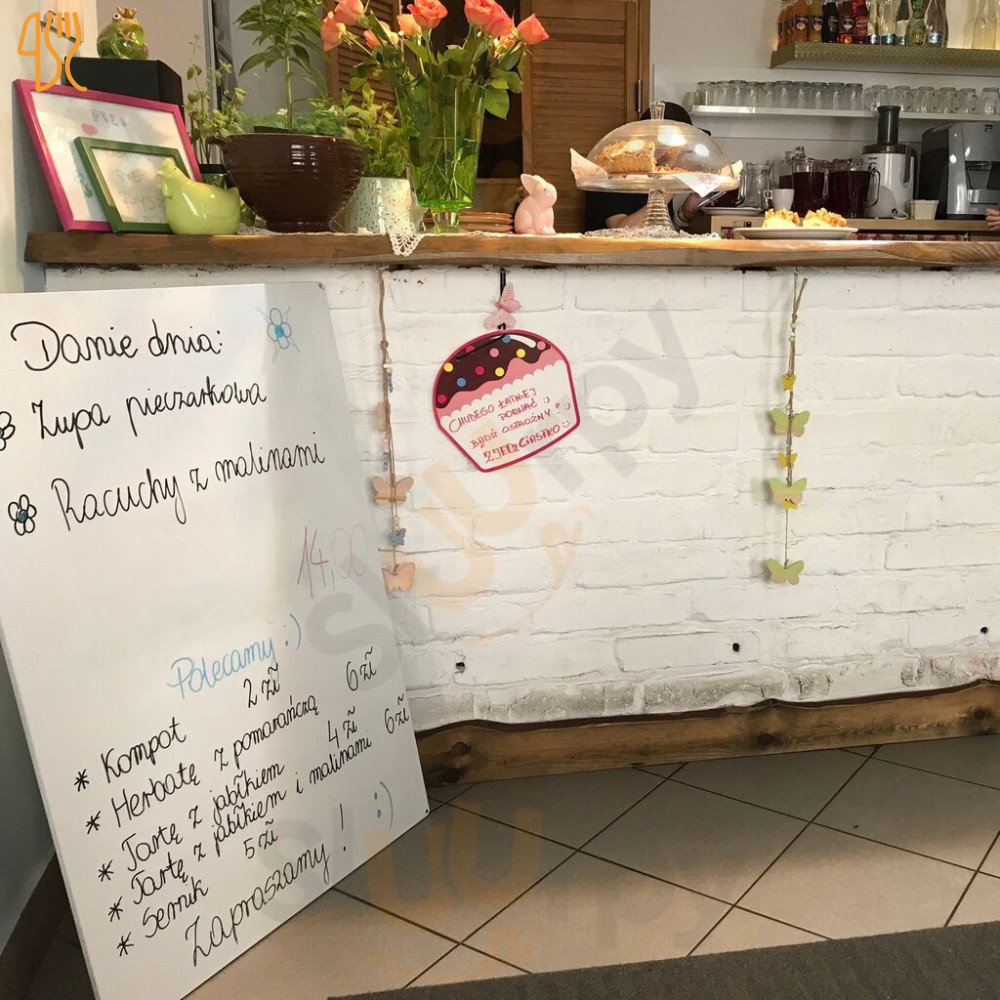 Danie dnia:
Zupa pieczarkowa
Racuchy z malinami
14,00
Polecamy :)
* Kompot 2 zł
* Herbatę z pomarańczą 6 zł
* Tartę z jabłkiem 4 zł
* Tartę z jabłkiem i malinami 6 zł
* Sernik 5 zł
Zapraszamy! :)
CHUDEGO ŁATWIEJ
PORWAĆ :)
BĄDŹ OSTROŻNY
ZJEDZ CIASTKO :)
sluurpy
sluurpy